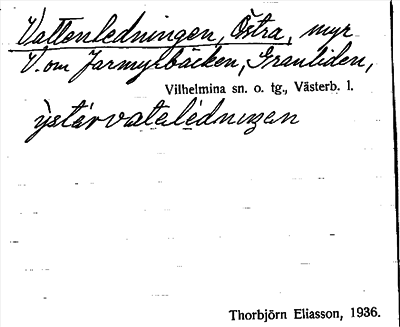 Vattenledningen, Östra, myr
V. om Jarmyrbäcken, Granliden,
Vilhelmina sn. o. tg., Västerb. l.
ỳstárvatelédnıŋen
Thorbjörn Eliasson, 1936.